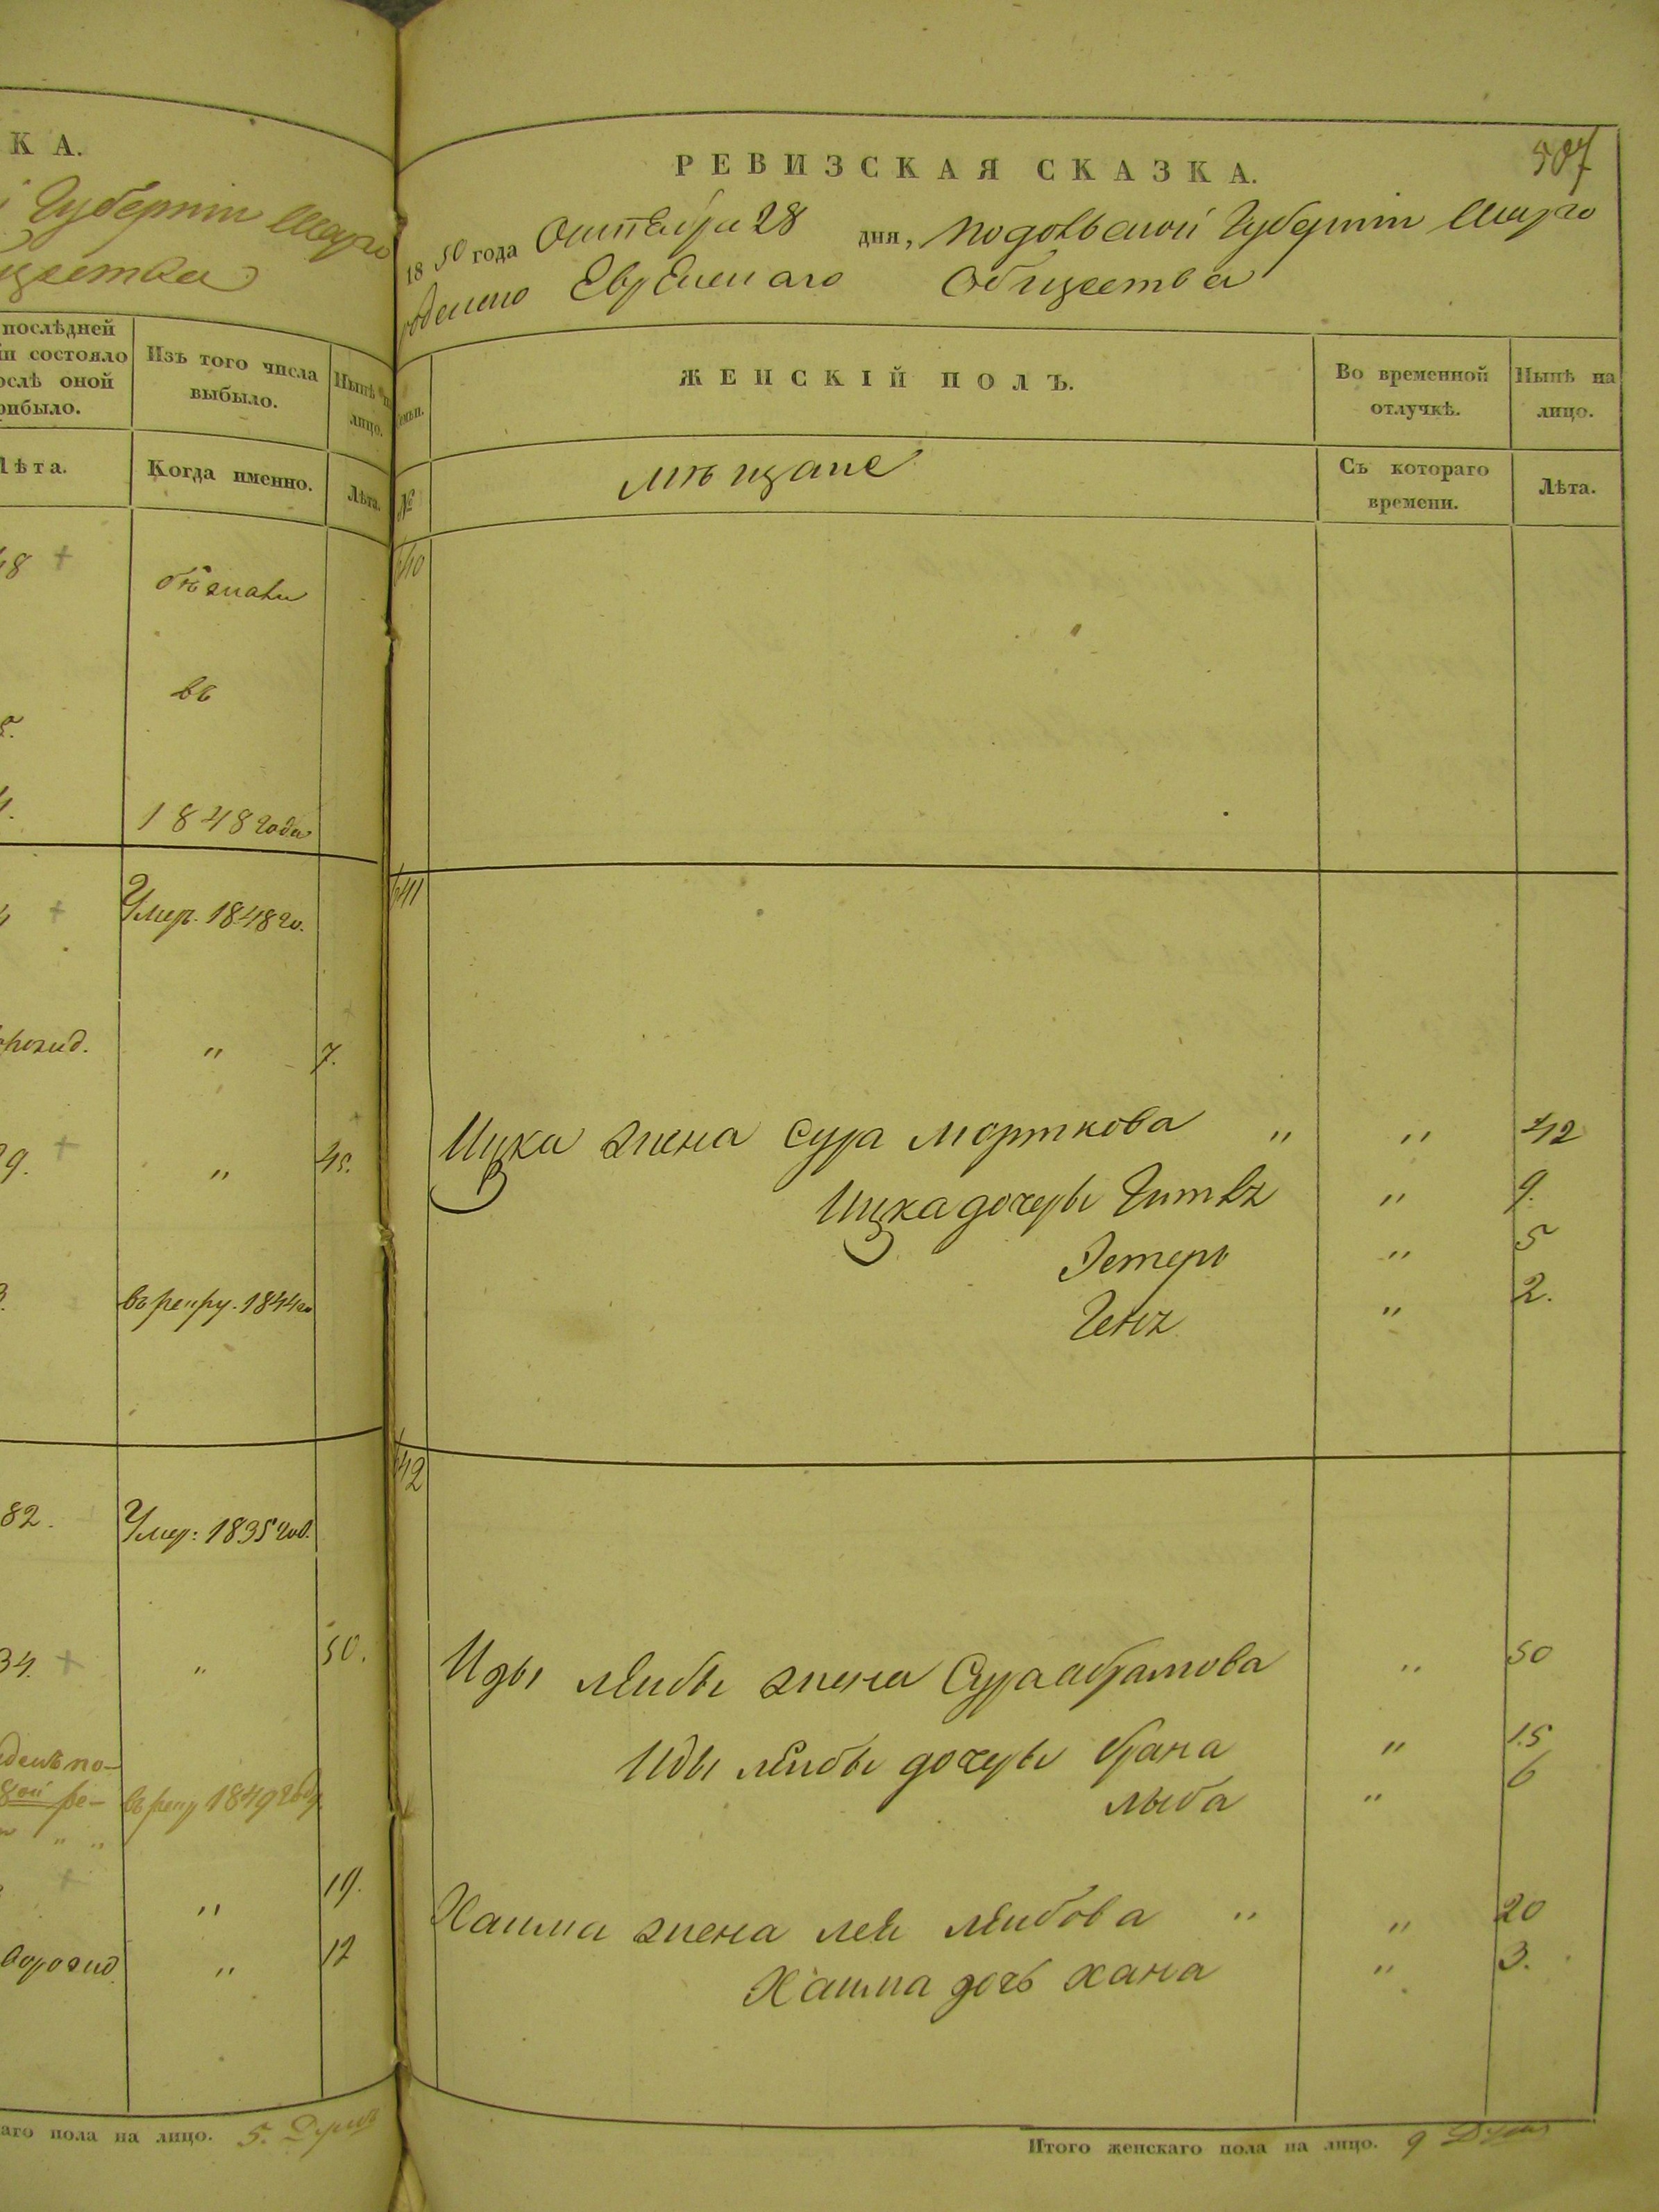 К А.
Губерніи Шарго
послѣдней
состояло
оной
Изъ того числа
выбыло.
Нынѣ на
лицо.
Лѣта.
Когда именно.
Лѣта.
бѣжали
въ
1848 года
Умер. 1848 го.
" 7.
" 45.
въ рекру. 1844 го
82. Умер: 1835 год.
34. " 50.
" 19.
" 12
пола на лицо. 5.
507
РЕВИЗСКАЯ СКАЗКА.
1850 года Октября 28 дня, Подольской Губерніи Шарго
родскаго Еврейскаго Общества
ЖЕНСКІЙ ПОЛЪ.
Во временной
отлучкѣ.
Нынѣ на
лицо.
№
мѣщане
Съ котораго
времени.
Лѣта.
640
641
Ицка жена Сура Морткова " " 42
Ицка дочеры Гитля " 9.
Эстеръ " 5
Геня " 2.
642
Иды Лейбы жена Сура Абрамова " 50
Иды Лейбы дочеры Брана " 15
Лыба " 6
Хаима жена Лея Лейбова " " 20
Хаима дочь Хана " 3.
Итого женскаго пола на лицо. 9